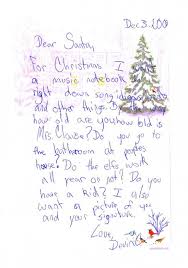 Dec 3, 200
Dear Santa,
For Christmas I
want a music notebook
right down song
and other things.
how old are you how old is
Mrs. Clause? Do you go to
the bathroom at peoples
house? Do the elfs work
all year or not? Do you
have a kid? I also
want a picture of you
and your signature.
Love,